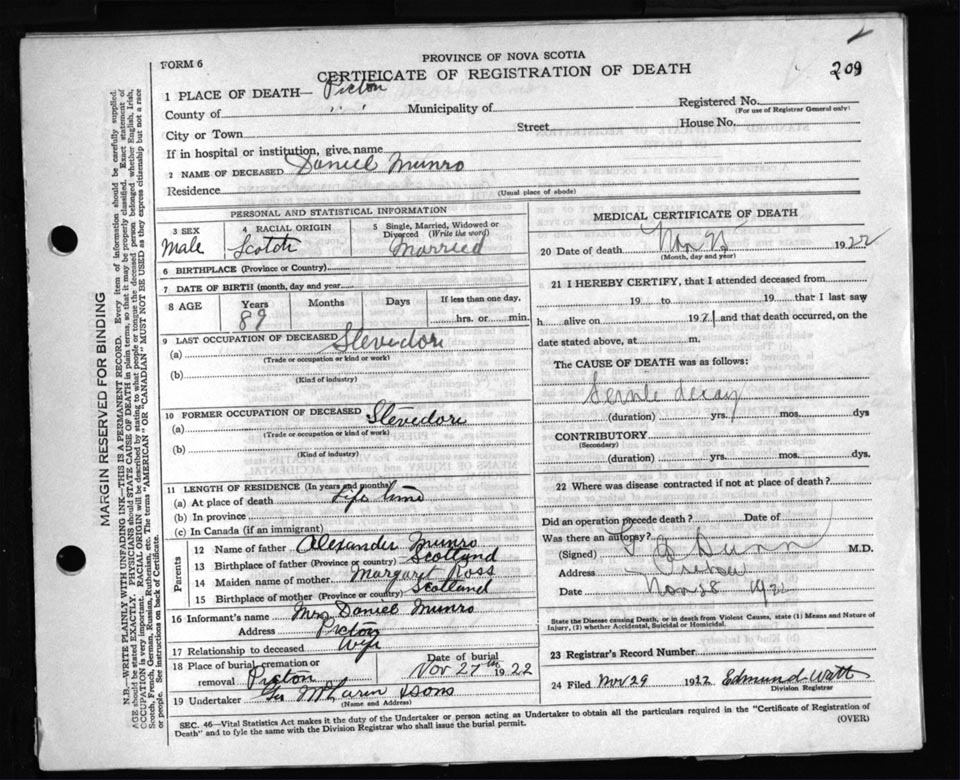 FORM 6
PROVINCE OF NOVA SCOTIA
CERTIFICATE OF REGISTRATION OF DEATH
209
1 PLACE OF DEATH— Pictou
County of " " Municipality of
Registered No.
(For use of Registrar General only)
City or Town Street House No.
If in hospital or institution, give name
2 NAME OF DECEASED Daniel Munro
Residence
(Usual place of abode)
PERSONAL AND STATISTICAL INFORMATION
3 SEX Male
4 RACIAL ORIGIN Scotch
5 Single, Married, Widowed or Divorced (Write the word) Married
6 BIRTHPLACE (Province or Country)
7 DATE OF BIRTH (month, day and year)
8 AGE Years Months Days If less than one day,
89 hrs. or min.
9 LAST OCCUPATION OF DECEASED Stevedore
(a)
(Trade or occupation or kind or work)
(b)
(Kind of industry)
10 FORMER OCCUPATION OF DECEASED Stevedore
(a)
(Trade or occupation or kind of work)
(b)
(Kind of industry)
11 LENGTH OF RESIDENCE (In years and months)
(a) At place of death Life time
(b) In province
(c) In Canada (if an immigrant)
Parents
12 Name of father Alexander Munro
13 Birthplace of father (Province or country) Scotland
14 Maiden name of mother Margaret Ross
15 Birthplace of mother (Province or country) Scotland
16 Informant's name Mrs Daniel Munro
Address Pictou
17 Relationship to deceased Wife
18 Place of burial, cremation or removal Pictou
Date of burial Nov 27th 1922
19 Undertaker & sons
(Name and Address)
MEDICAL CERTIFICATE OF DEATH
20 Date of death Nov 1922
(Month, day and year)
21 I HEREBY CERTIFY, that I attended deceased from
19 to 19 that I last saw
h alive on 192 and that death occurred, on
date stated above, at m.
The CAUSE OF DEATH was as follows:
Senile decay
(duration) yrs. mos. dys
CONTRIBUTORY
(Secondary)
(duration) yrs. mos. dys.
22 Where was disease contracted if not at place of death?
Did an operation precede death? Date of
Was there an autopsy?
(Signed) Dunn M.D.
Address Pictou
Date Nov 28 1922
State the Disease causing Death, or in death from Violent Causes, state (1) Means and Nature of
Injury, (2) whether Accidental, Suicidal or Homicidal.
23 Registrar's Record Number
24 Filed Nov 29 1922 Edmund Watt
Division Registrar
SEC. 46—Vital Statistics Act makes it the duty of the Undertaker or person acting as Undertaker to obtain all the particulars required in the "Certificate of Registration of
Death" and to fyle the same with the Division Registrar who shall issue the burial permit.
(OVER)
MARGIN RESERVED FOR BINDING
N.B.—WRITE PLAINLY WITH UNFADING INK—THIS IS A PERMANENT RECORD. Every item of information should be carefully supplied.
AGE should be stated EXACTLY. PHYSICIANS should STATE CAUSE OF DEATH in plain terms, so that it may be properly classified. Exact statement of
OCCUPATION is very important. RACIAL ORIGIN will be described by stating to what people or tongue the deceased person belonged whether English, Irish,
Scotch, French, German, Russian, Ruthenian, etc. The terms "AMERICAN" OR "CANADIAN" MUST NOT BE USED as they express citizenship but not a race
or people. See instructions on back of Certificate.